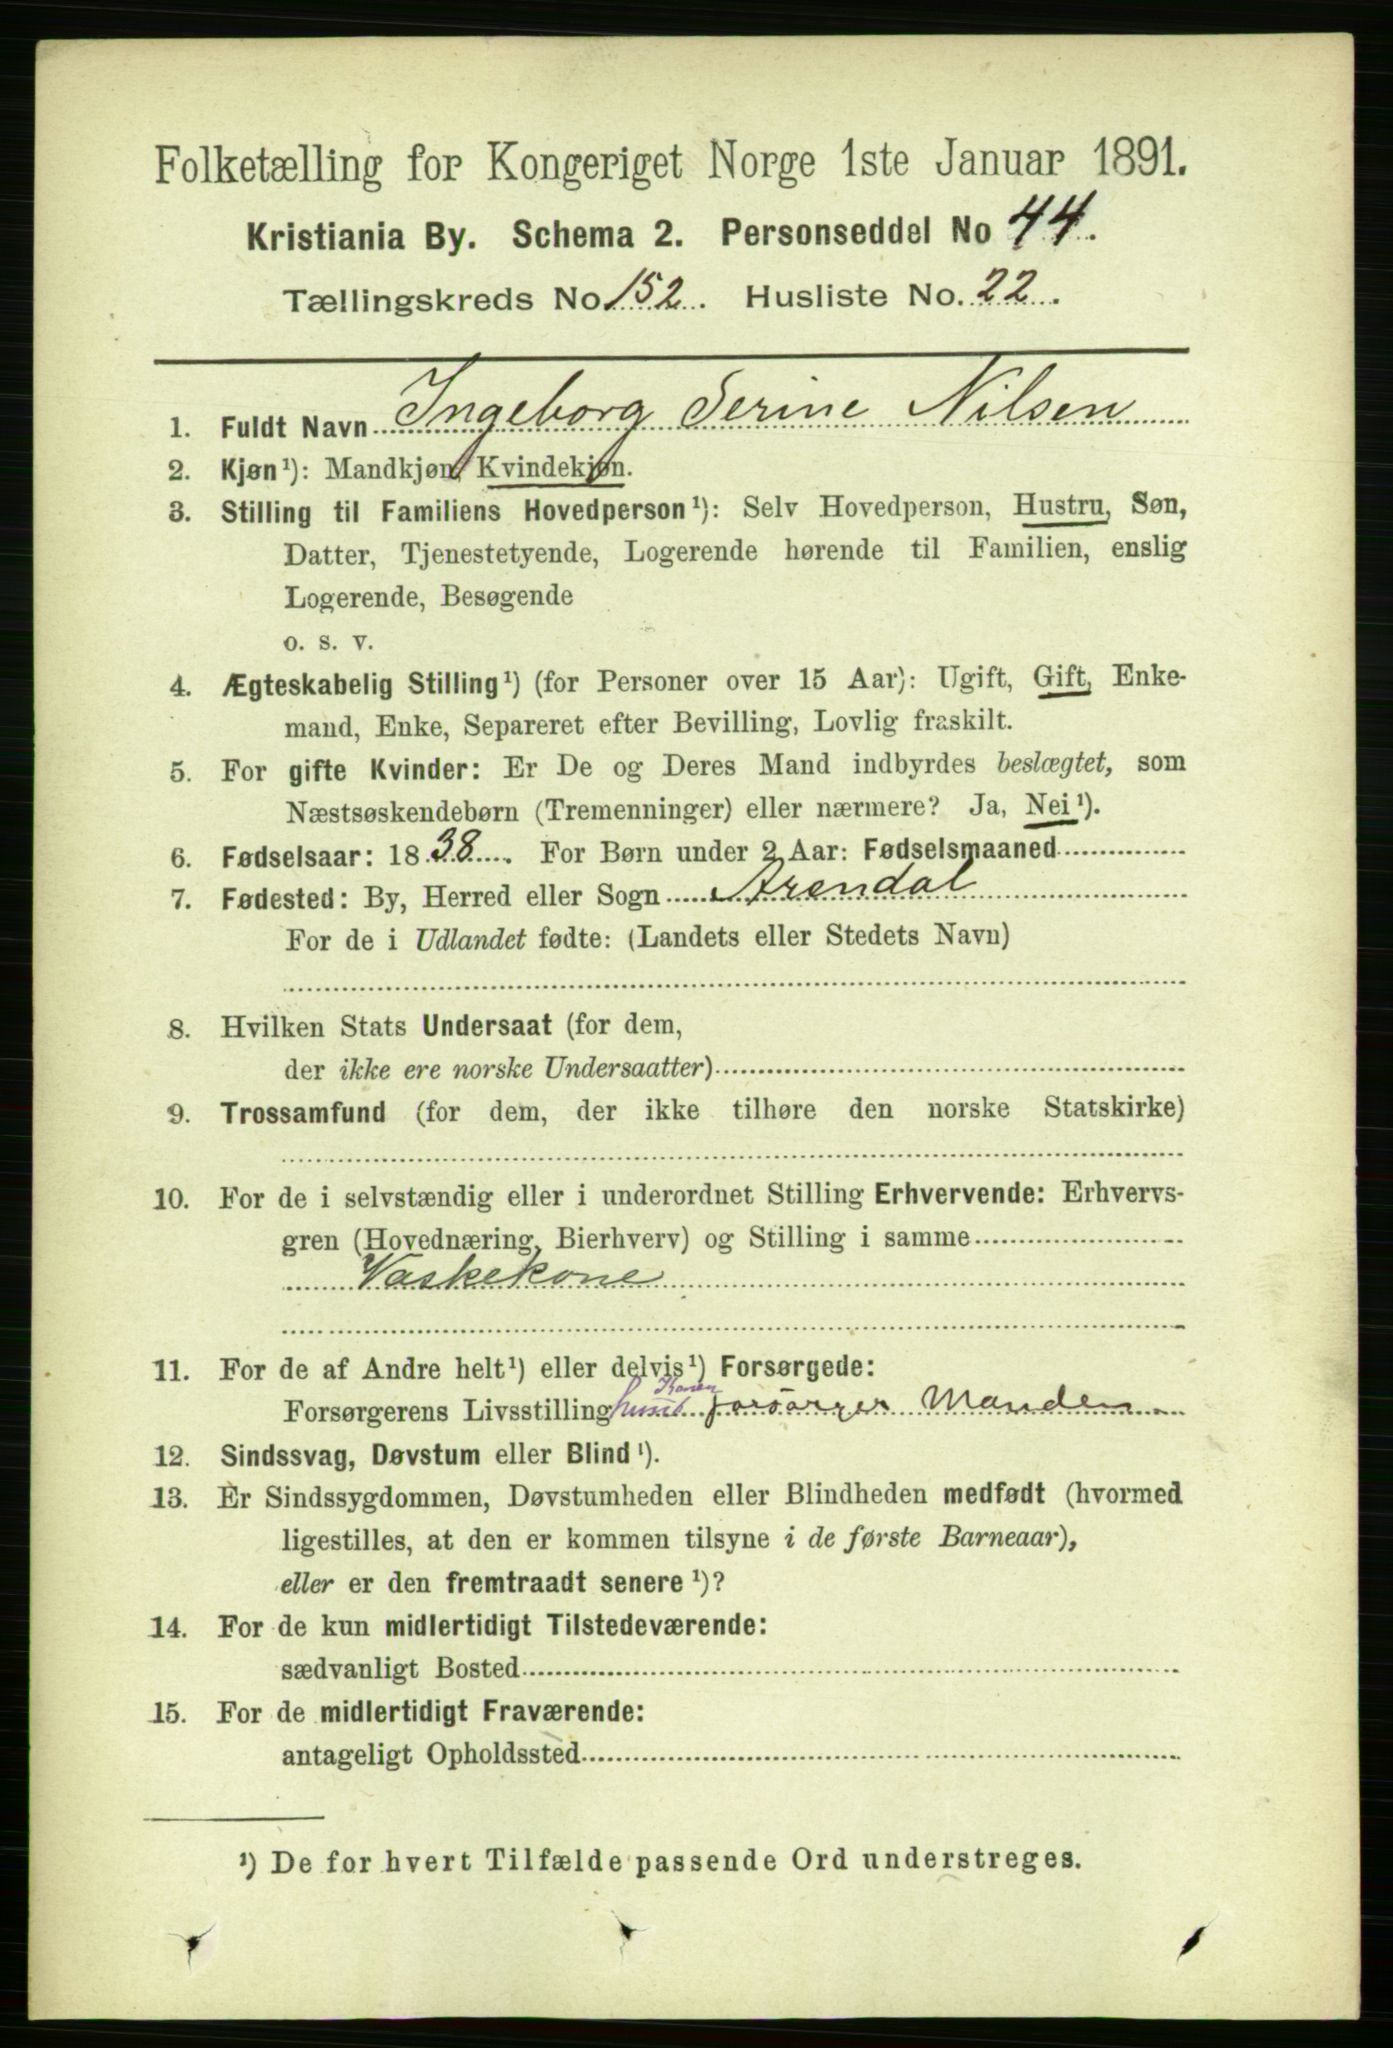 Folketælling for Kongeriget Norge 1ste Januar 1891.
Kristiania By. Schema 2. Personseddel No 44.
Tællingskreds No. 152. Husliste No. 22.
1. Fuldt Navn Ingeborg Serine Nilsen
2. Kjøn¹): Mandkjøn, Kvindekjøn.
3. Stilling til Familiens Hovedperson¹): Selv Hovedperson, Hustru, Søn,
Datter, Tjenestetyende, Logerende hørende til Familien, enslig
Logerende, Besøgende
o. s. v.
4. Ægteskabelig Stilling¹) (for Personer over 15 Aar): Ugift, Gift, Enke-
mand, Enke, Separeret efter Bevilling, Lovlig fraskilt.
5. For gifte Kvinder: Er De og Deres Mand indbyrdes beslægtet, som
Næstsøskendebørn (Tremenninger) eller nærmere? Ja, Nei¹).
6. Fødselsaar: 1838. For Børn under 2 Aar: Fødselsmaaned
7. Fødested: By, Herred eller Sogn Arendal
For de i Udlandet fødte: (Landets eller Stedets Navn)
8. Hvilken Stats Undersaat (for dem,
der ikke ere norske Undersaatter)
9. Trossamfund (for dem, der ikke tilhøre den norske Statskirke)
10. For de i selvstændig eller i underordnet Stilling Erhvervende: Erhvervs-
gren (Hovednæring, Bierhverv) og Stilling i samme
Vaskekone
11. For de af Andre helt¹) eller delvis¹) Forsørgede:
Konen
Forsørgerens Livsstilling forsörger Manden
12. Sindssvag, Døvstum eller Blind¹).
13. Er Sindssygdommen, Døvstumheden eller Blindheden medfødt (hvormed
ligestilles, at den er kommen tilsyne i de første Barneaar),
eller er den fremtraadt senere¹)?
14. For de kun midlertidigt Tilstedeværende:
sædvanligt Bosted
15. For de midlertidigt Fraværende:
antageligt Opholdssted
¹) De for hvert Tilfælde passende Ord understreges.